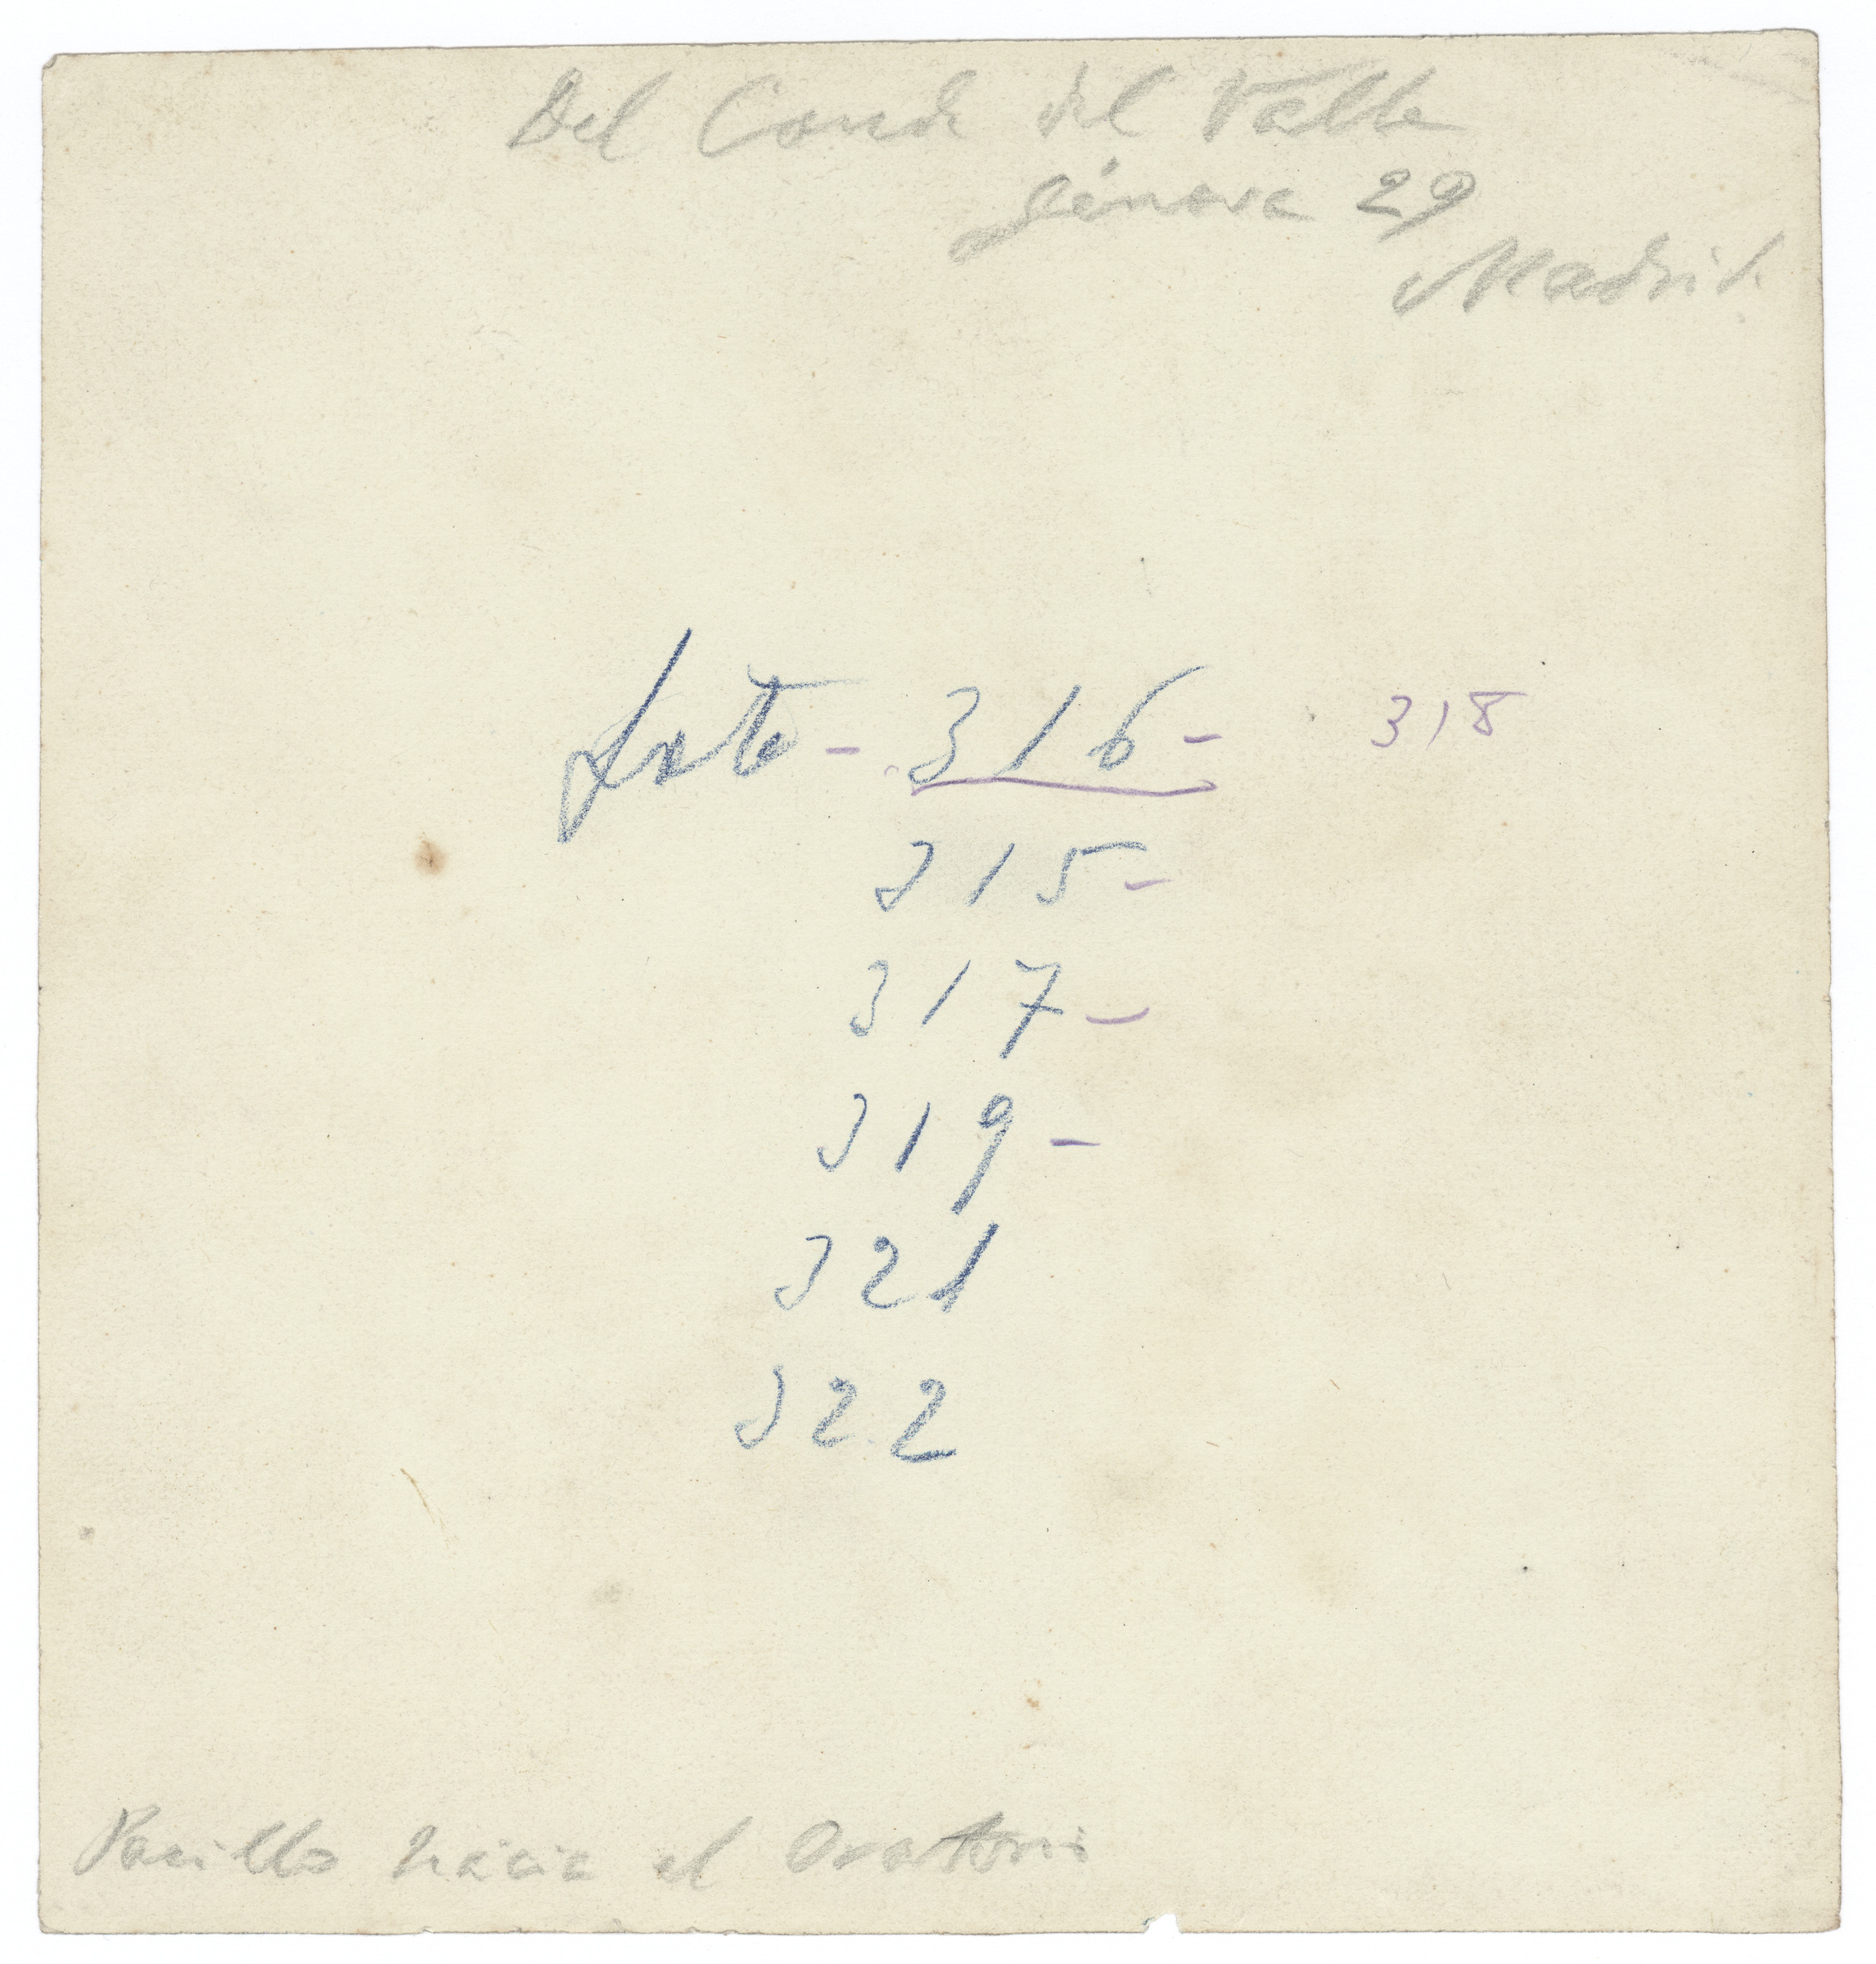 Del Conde del Valle
Génova 29
Madrid.
316 - 318
315 -
317 -
319 -
321
322
Pasillo hácia el Oratorio